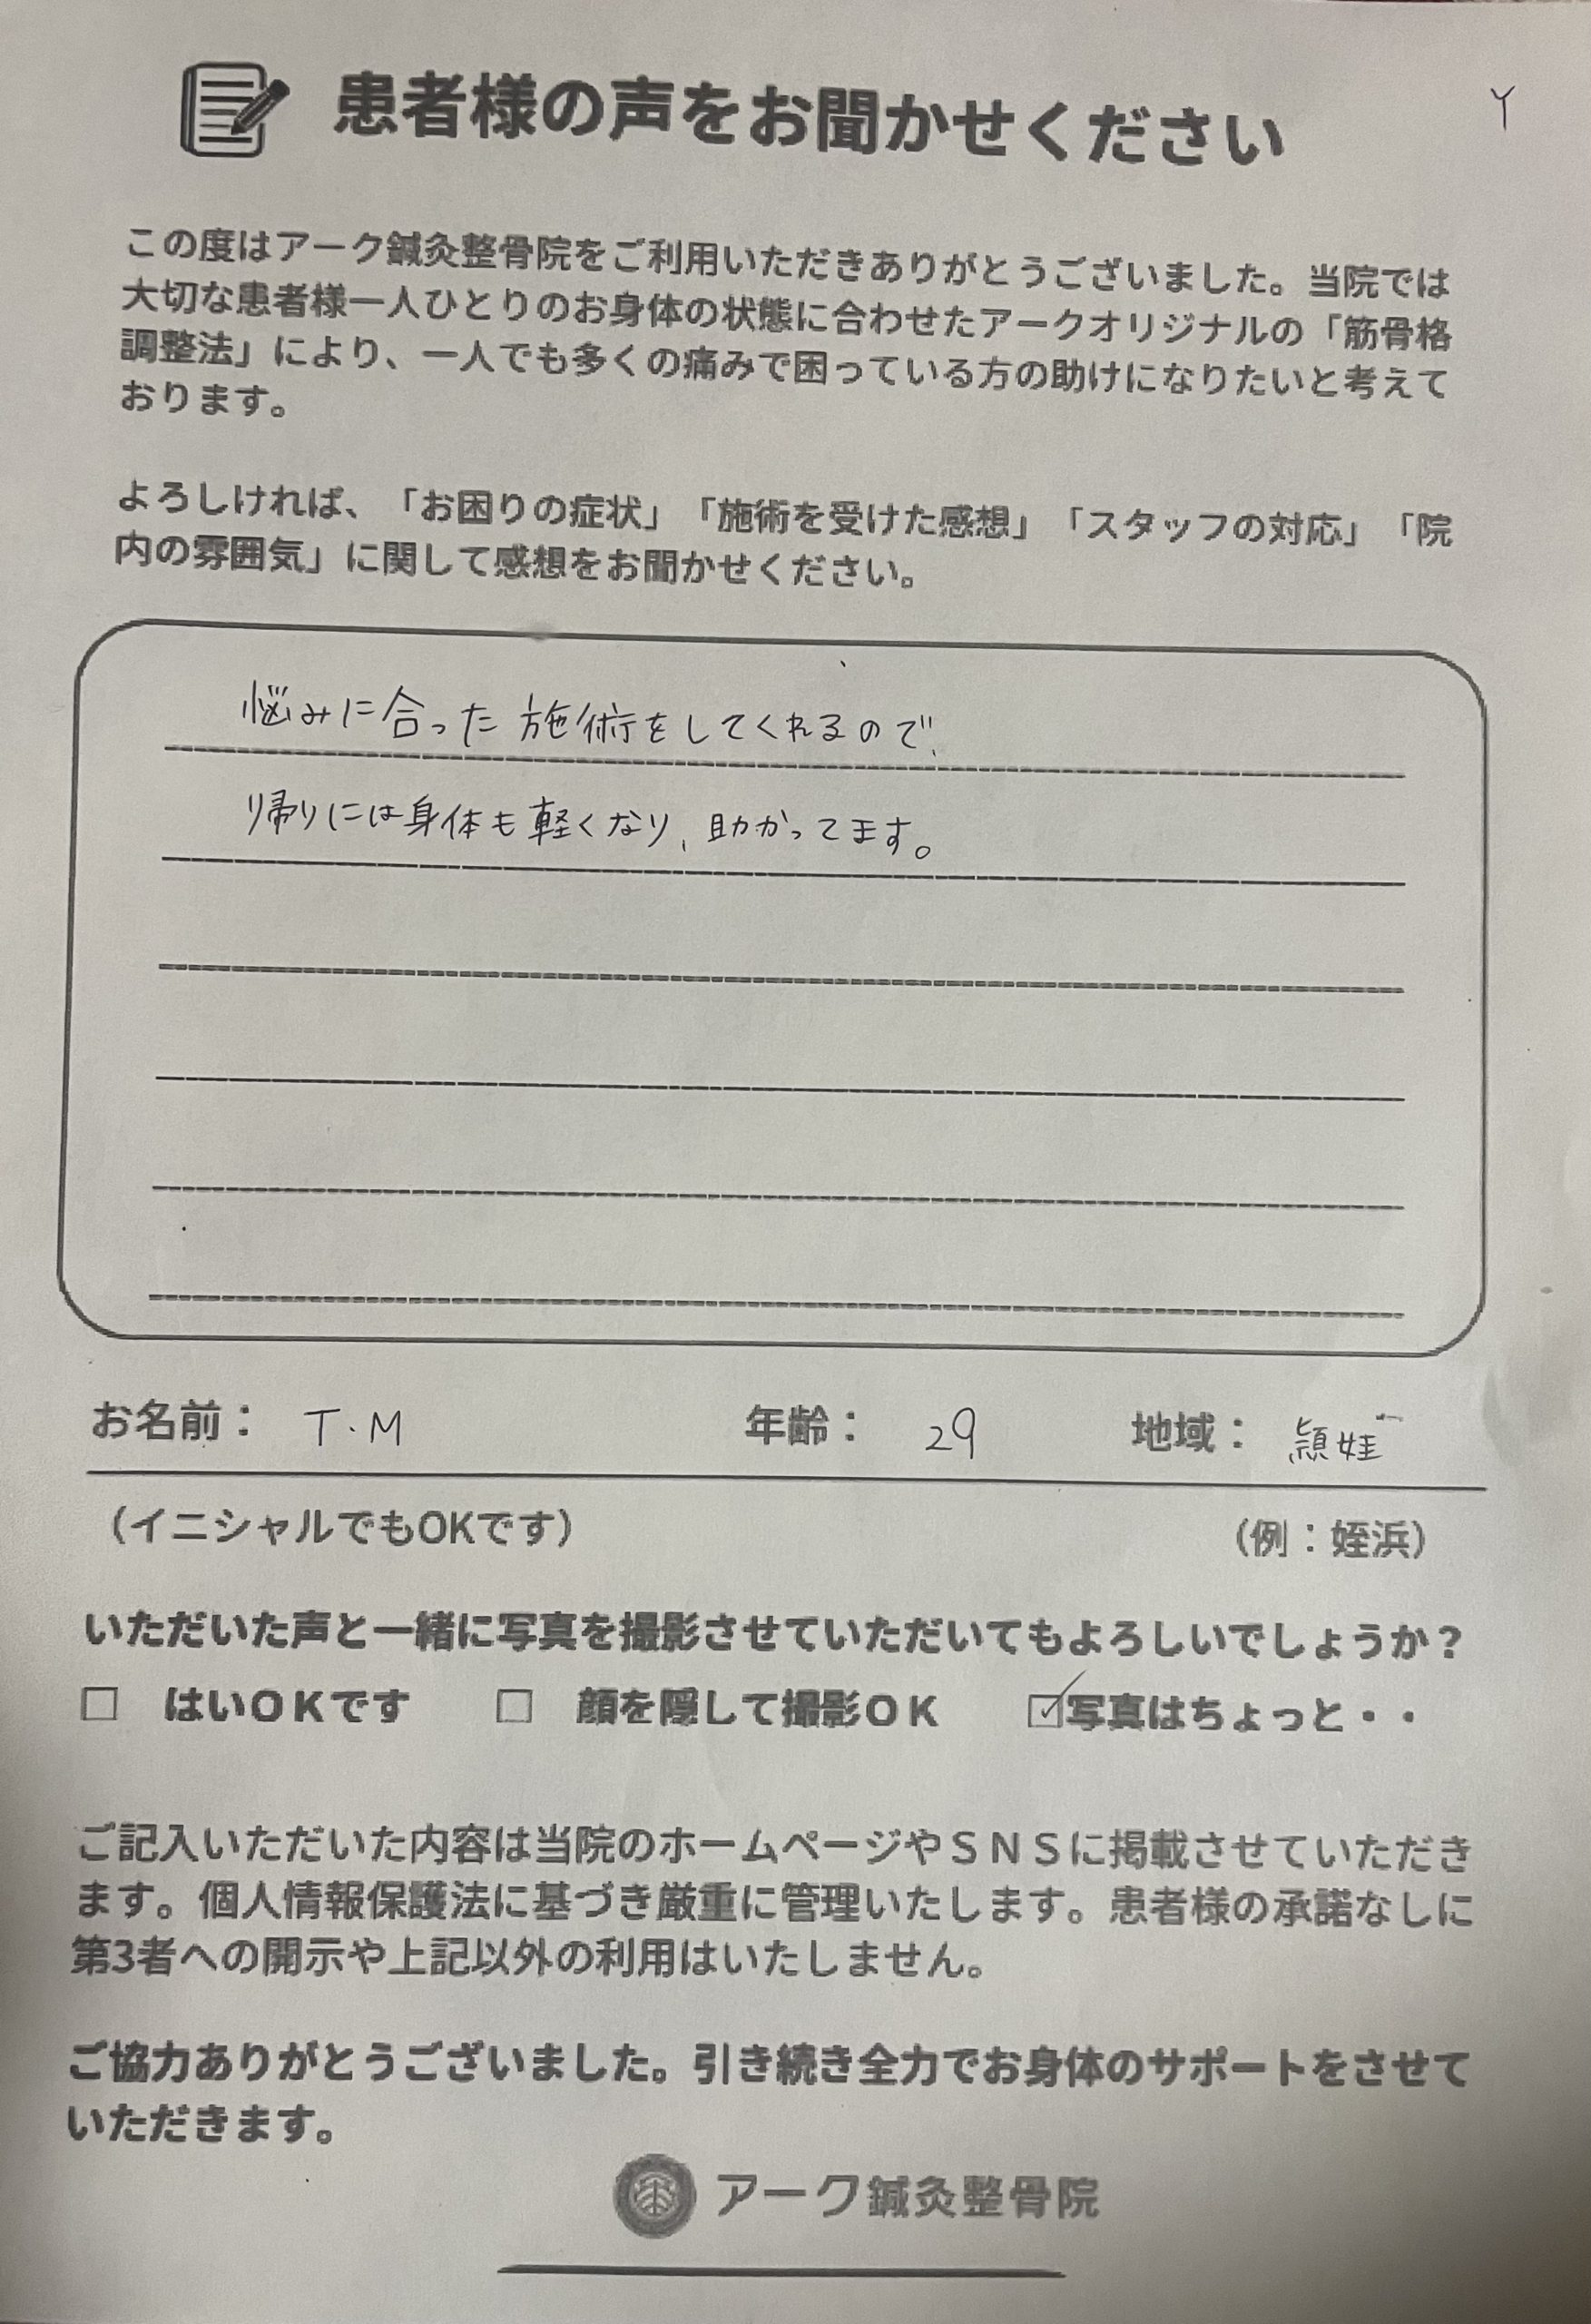 患者様の声をお聞かせください
Y
この度はアーク鍼灸整骨院をご利用いただきありがとうございました。当院では
大切な患者様一人ひとりのお身体の状態に合わせたアークオリジナルの「筋骨格
調整法」により、一人でも多くの痛みで困っている方の助けになりたいと考えて
おります。
よろしければ、「お困りの症状」「施術を受けた感想」「スタッフの対応」「院
内の雰囲気」に関して感想をお聞かせください。
悩みに合った施術をしてくれるので、
帰りには身体も軽くなり、助かってます。
お名前： T.M 年齢： 29 地域： 頴娃
（イニシャルでもOKです） （例：姪浜）
いただいた声と一緒に写真を撮影させていただいてもよろしいでしょうか？
□ はいＯＫです □ 顔を隠して撮影ＯＫ ☑写真はちょっと・・
ご記入いただいた内容は当院のホームページやＳＮＳに掲載させていただき
ます。個人情報保護法に基づき厳重に管理いたします。患者様の承諾なしに
第3者への開示や上記以外の利用はいたしません。
ご協力ありがとうございました。引き続き全力でお身体のサポートをさせて
いただきます。
アーク鍼灸整骨院